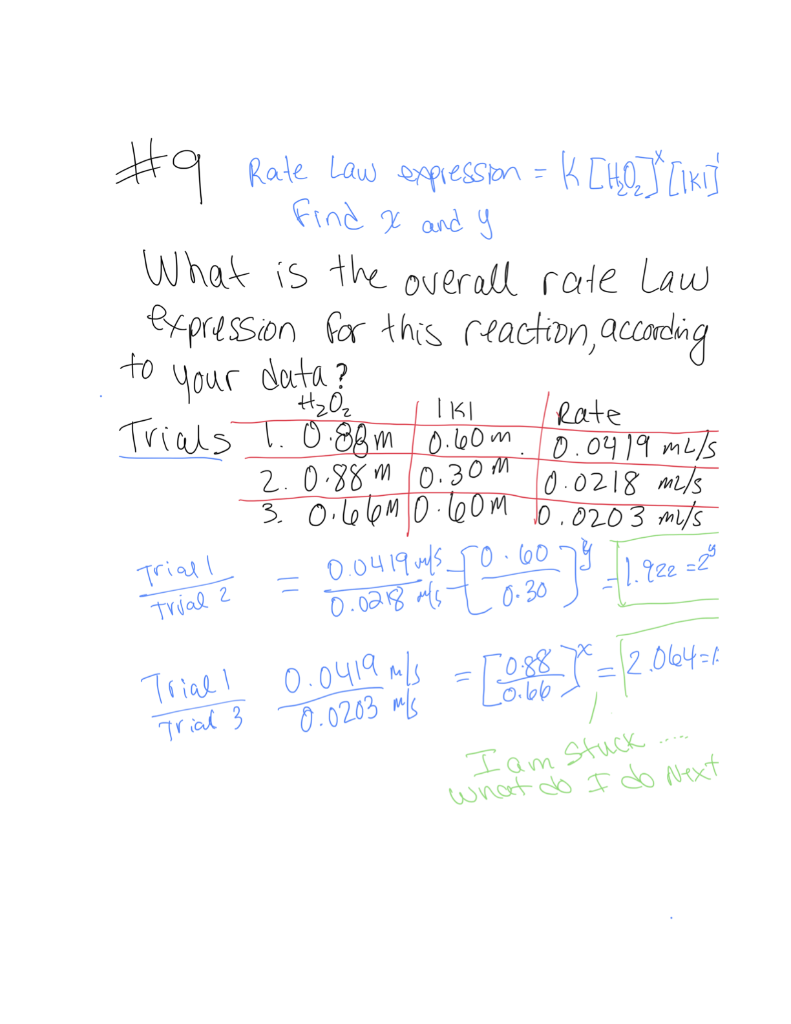 #9 Rate Law expression = K [H₂O₂]ˣ [IKI]
Find x and y
What is the overall rate Law
expression for this reaction, according
to your data?
H₂O₂ IKI Rate
Trials 1. 0.88m 0.60m. 0.0419 mL/s
2. 0.88 m 0.30 m 0.0218 mL/s
3. 0.66M 0.60M 0.0203 mL/s
Trial 1 / Trial 2 = 0.0419 m/s / 0.0218 m/s = [0.60 / 0.30]ʸ = 1.922 = 2ʸ
Trial 1 / Trial 3 0.0419 m/s / 0.0203 m/s = [0.88 / 0.66]ˣ = 2.064 = 1.
I am stuck .....
what do I do Next